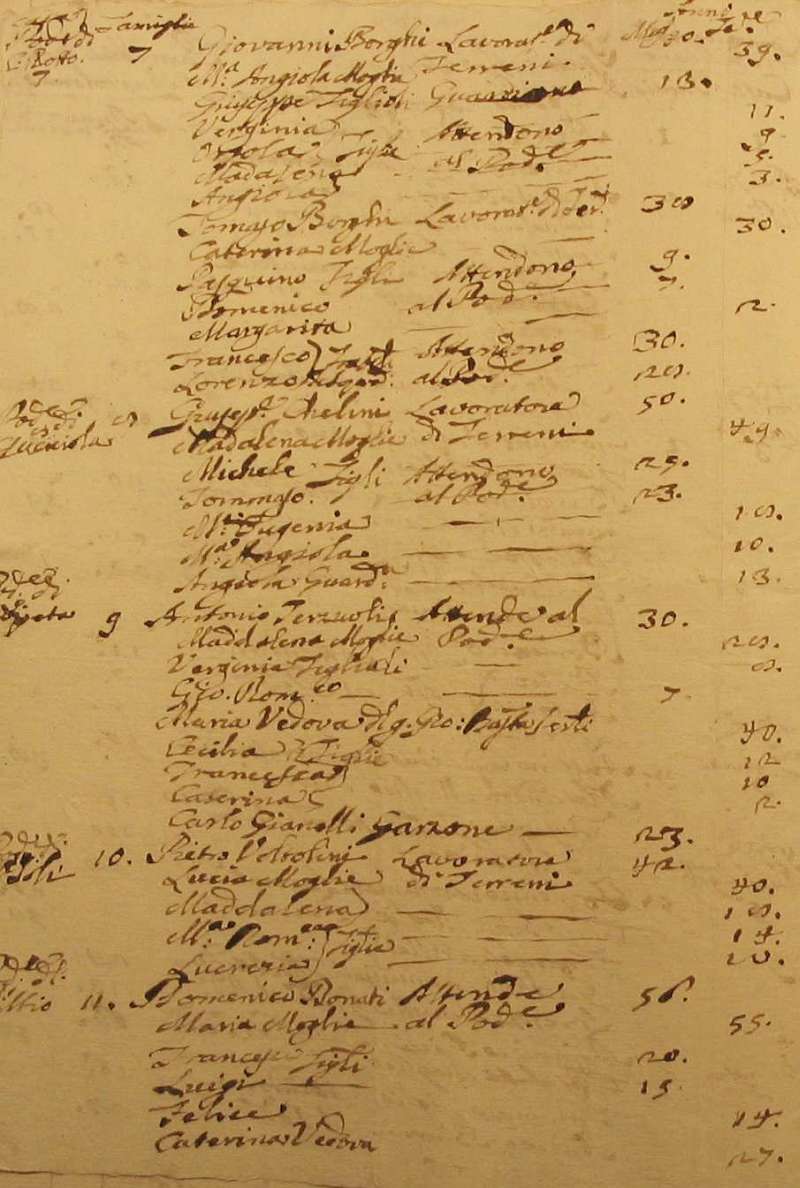 Famiglie Anni
7 Giovanni Borghi Lavorat.e di 30. 39.
7 M.a Angiola Moglie Terreni
Giuseppe Figlioli Guardiano 13.
Verginia — 11.
Orsola Figlie Attendono 9
Madalena al Pod.e 5.
Angiola — 3.
Tomaso Borghi Lavorat.e di Ter.i 38
Caterina Moglie — 30.
Pasquino Figli Attendono 9.
Domenico al Pod.e 7.
Margarita — 2.
Francesco Attendono 30.
Lorenzo al Pod.e 28.
8 Giusep.e Chelini Lavoratore 50.
Lucciola Madalena Moglie di Terreni 49.
Michele Figli Attendono 25.
Tommaso al Pod.e 23.
M.a Eugenia — 18.
M.a Angiola — 10.
Angiola Guard.a — 13.
9 Antonio Terzuoli Attende al 30.
Maddalena Moglie Pod.e 28.
Verginia Figliuoli — 8.
Gio. Rom.co — 7
Maria Vedova d. q. Gio: Batta 40.
Cecilia Figlie 12
Francesca 10
Caterina 2.
Carlo Gianelli Garzone — 23.
10. Pietro Lavoratore 42.
Lucia Moglie di Terreni 40.
Maddalena — 18.
M.a Rom.na Figlie — 14.
Lucrezia — 20.
11. Domenico Bonati Attende 56.
Maria Moglie al Pod.e 55.
Francesco Figli 20.
Luigi — 15
Felice 14.
Caterina Vedova 27.